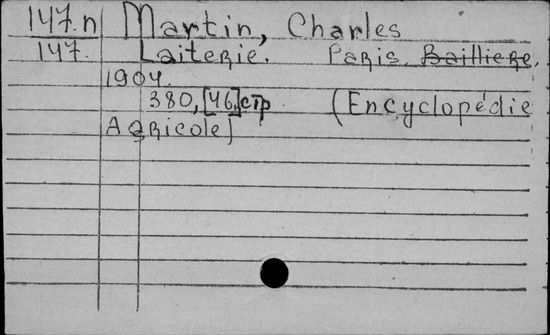 147.n Martin, Charles
147. Laiterie. Paris, Bailliere,
1904.
380, [46] стр (Encyclopédie
Agricole)